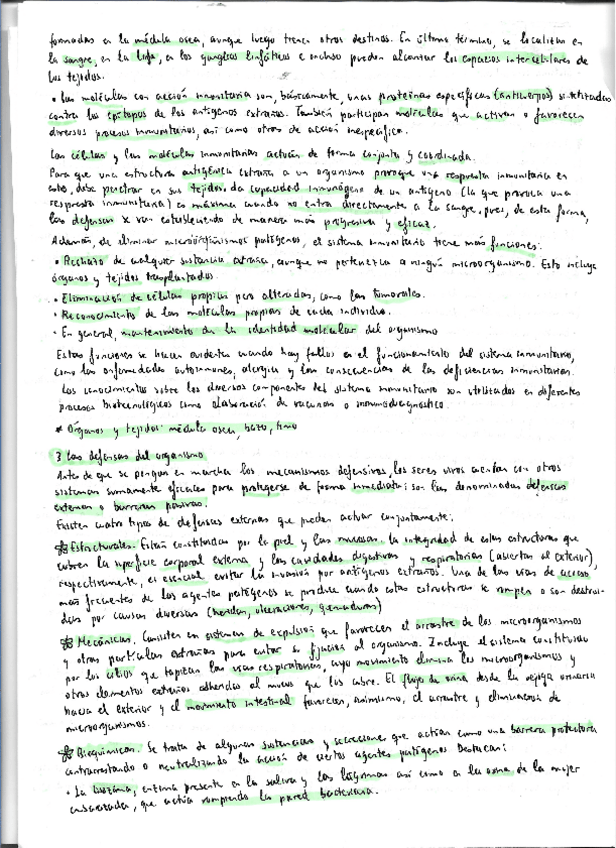 formadas en la médula osea, aunque luego tienen otros destinos. En último término, se localizan en
la sangre, en la linfa, en los ganglios linfáticos e incluso pueden alcanzar los espacios intercelulares de
los tejidos.
• Las moléculas con acción inmunitaria son, básicamente, unas proteínas específicas (anticuerpos) sintetizadas
contra los epítopos de los antígenos extraños. También participan moléculas que activan o favorecen
diversos procesos inmunitarios, así como otras de acción inespecífica.
Las células y las moléculas inmunitarias actúan de forma conjunta y coordinada.
Para que una estructura antigénica extraña a un organismo provoque una respuesta inmunitaria en
este, debe penetrar en sus tejidos. La capacidad inmunógena de un antígeno (la que provoca una
respuesta inmunitaria) es máxima cuando no entra directamente a la sangre, pues, de esta forma,
las defensas se van estableciendo de manera más progresiva y eficaz.
Además, de eliminar microorganismos patógenos, el sistema inmunitario tiene más funciones:
• Rechazo de cualquier sustancia extraña, aunque no pertenezca a ningún microorganismo. Esto incluye
órganos y tejidos trasplantados.
• Eliminación de células propias pero alteradas, como las tumorales.
• Reconocimiento de las moléculas propias de cada individuo.
• En general, mantenimiento de la identidad molecular del organismo
Estas funciones se hacen evidentes cuando hay fallos en el funcionamiento del sistema inmunitario,
como las enfermedades autoinmunes, alergia y las consecuencias de las deficiencias inmunitarias.
Los conocimientos sobre los diversos componentes del sistema inmunitario son utilizados en diferentes
procesos biotecnológicos como elaboración de vacunas o inmunodiagnóstico.
* Órganos y tejidos: médula osea, bazo, timo
3 Las defensas del organismo
Antes de que se pongan en marcha los mecanismos defensivos, los seres vivos cuentan con otros
sistemas sumamente eficaces para protegerse de forma inmediata: son las denominadas defensas
externas o barreras pasivas.
Existen cuatro tipos de defensas externas que pueden actuar conjuntamente:
Estructurales. Están constituidas por la piel y las mucosas. La integridad de estas estructuras que
cubren la superficie corporal externa y las cavidades digestivas y respiratorias (abiertas al exterior),
respectivamente, es esencial evitar la invasión por antígenos extraños. Una de las vías de acceso
más frecuentes de los agentes patógenos se produce cuando estas estructuras se rompen o son destrui-
das por causas diversas (heridas, ulceraciones, quemaduras)
Mecánicas. Consisten en sistemas de expulsión que favorecen el arrastre de los microorganismos
y otras partículas extrañas para evitar su fijación al organismo. Incluye el sistema constituido
por los cilios que tapizan las vías respiratorias, cuyo movimiento elimina los microorganismos y
otros elementos extraños adheridos al moco que los cubre. El flujo de orina desde la vejiga urinaria
hacia el exterior y el movimiento intestinal favorecen, asimismo, el arrastre y eliminación de
microorganismos.
Bioquímicas. Se trata de algunas sustancias y secreciones que actúan como una barrera protectora
contrarrestando o neutralizando la acción de ciertos agentes patógenos. Destacan:
• La lisozima, enzima presente en la saliva y las lágrimas así como en la orina de la mujer
embarazada, que actúa rompiendo la pared bacteriana.